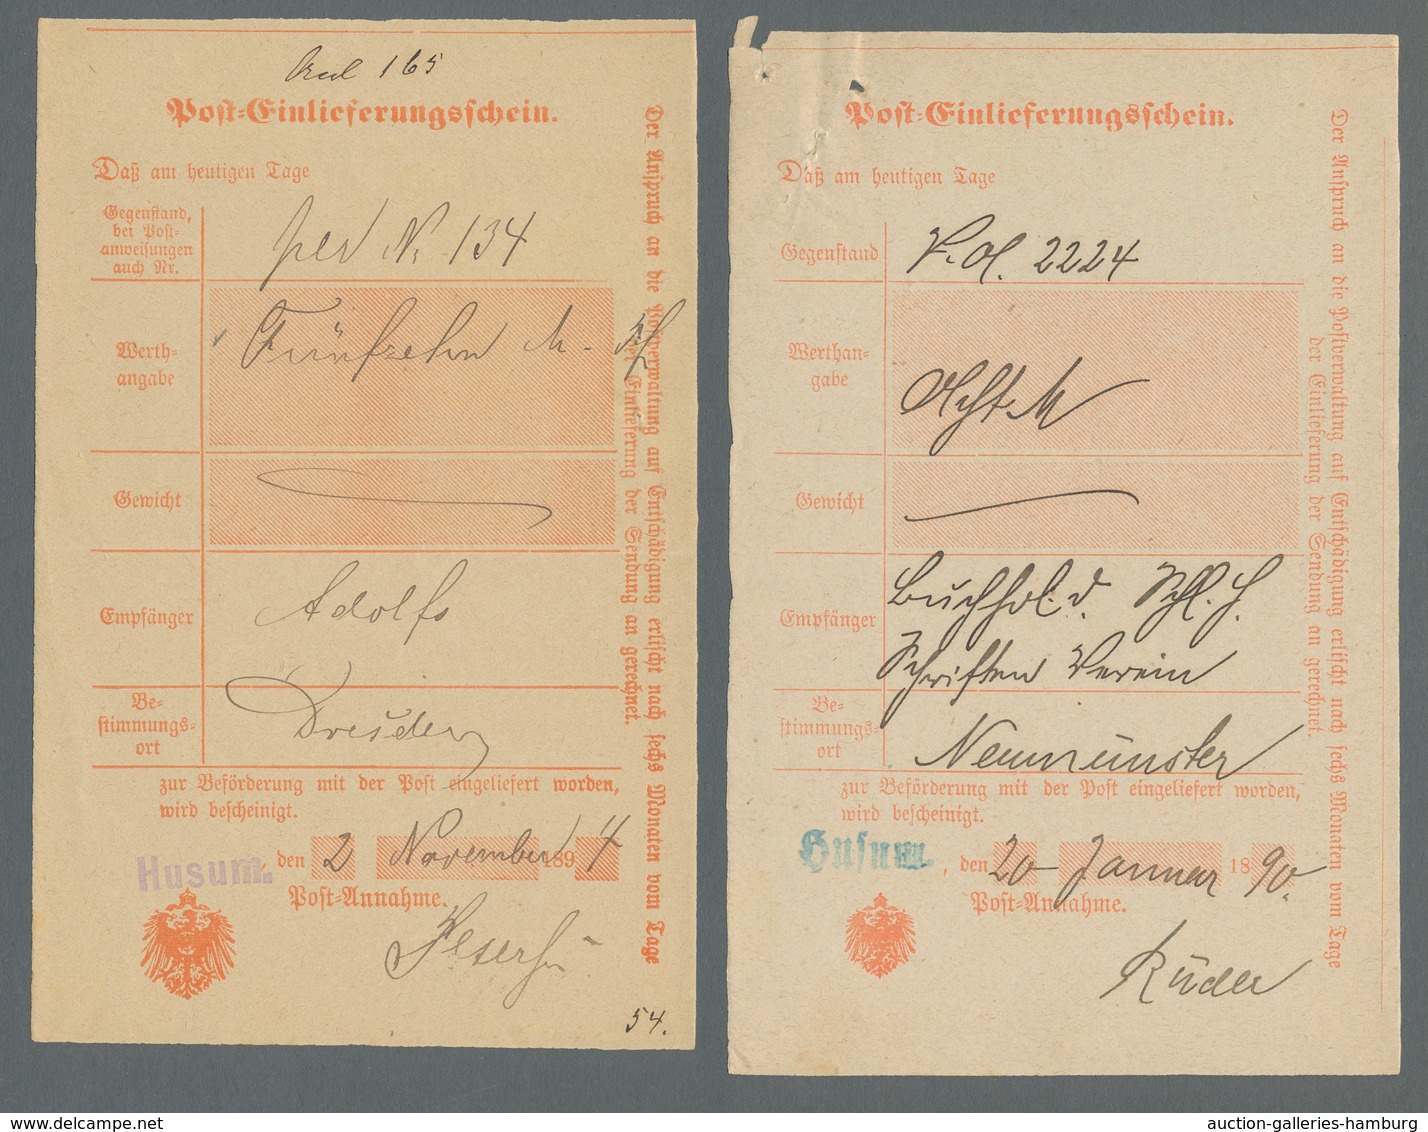 165
Post-Einlieferungsschein.
Daß am heutigen Tage
Gegenstand,
bei Post-
anweisungen
auch Nr.
per N. 134
Werth-
angabe
Fünfzehn M.
Gewicht
Empfänger
Adolfs
Be-
stimmungs-
ort
Dresden
zur Beförderung mit der Post eingeliefert worden,
wird bescheinigt.
Husum. , den 2 November 1894
Post-Annahme.
54.
Der Anspruch an die Postverwaltung auf Entschädigung erlischt nach sechs Monaten vom Tage
der Einlieferung der Sendung an gerechnet.
Post-Einlieferungsschein.
Daß am heutigen Tage
Gegenstand
2224
Werthan-
gabe
Acht M
Gewicht
Empfänger
Buchhol. d. Schl. H.
Schriften Verein
Be-
stimmungs-
ort
Neumünster
zur Beförderung mit der Post eingeliefert worden,
wird bescheinigt.
Husum. , den 20 Januar 1890.
Post-Annahme.
Rüder
Der Anspruch an die Postverwaltung auf Entschädigung erlischt nach sechs Monaten vom Tage
der Einlieferung der Sendung an gerechnet.
www.delcampe.net
auction-galleries-hamburg